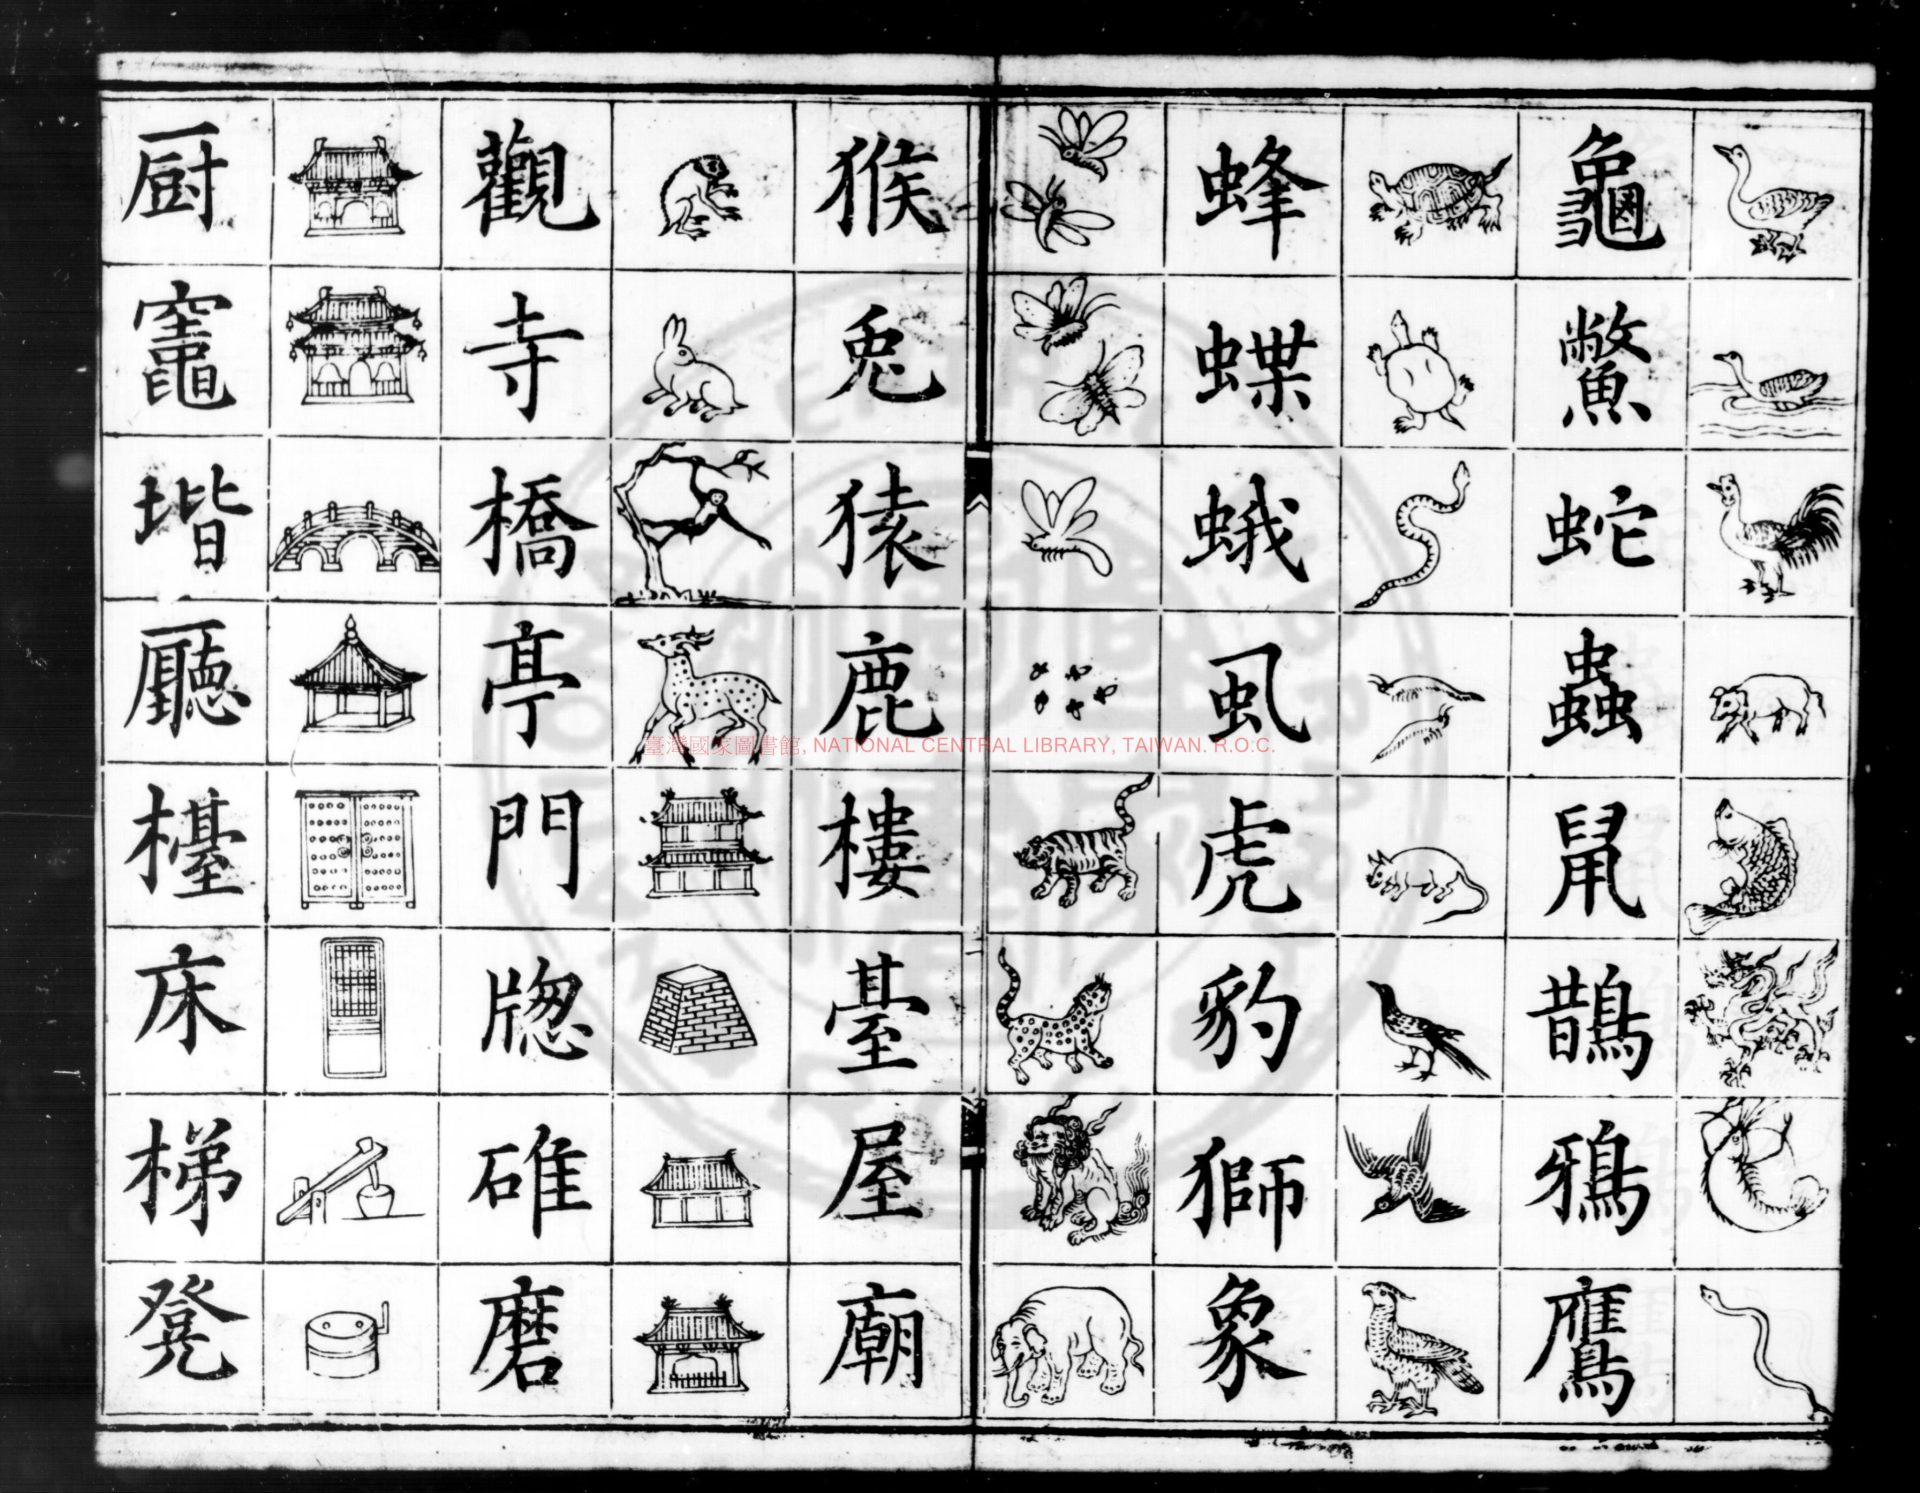 龜鱉蛇蟲鼠鵲鴉鷹
蜂蝶蛾虱虎豹獅象
猴兎猿鹿樓臺屋廟
觀寺橋亭門牎碓磨
厨竈堦廳檯床梯凳
臺灣國家圖書館, NATIONAL CENTRAL LIBRARY, TAIWAN. R.O.C.